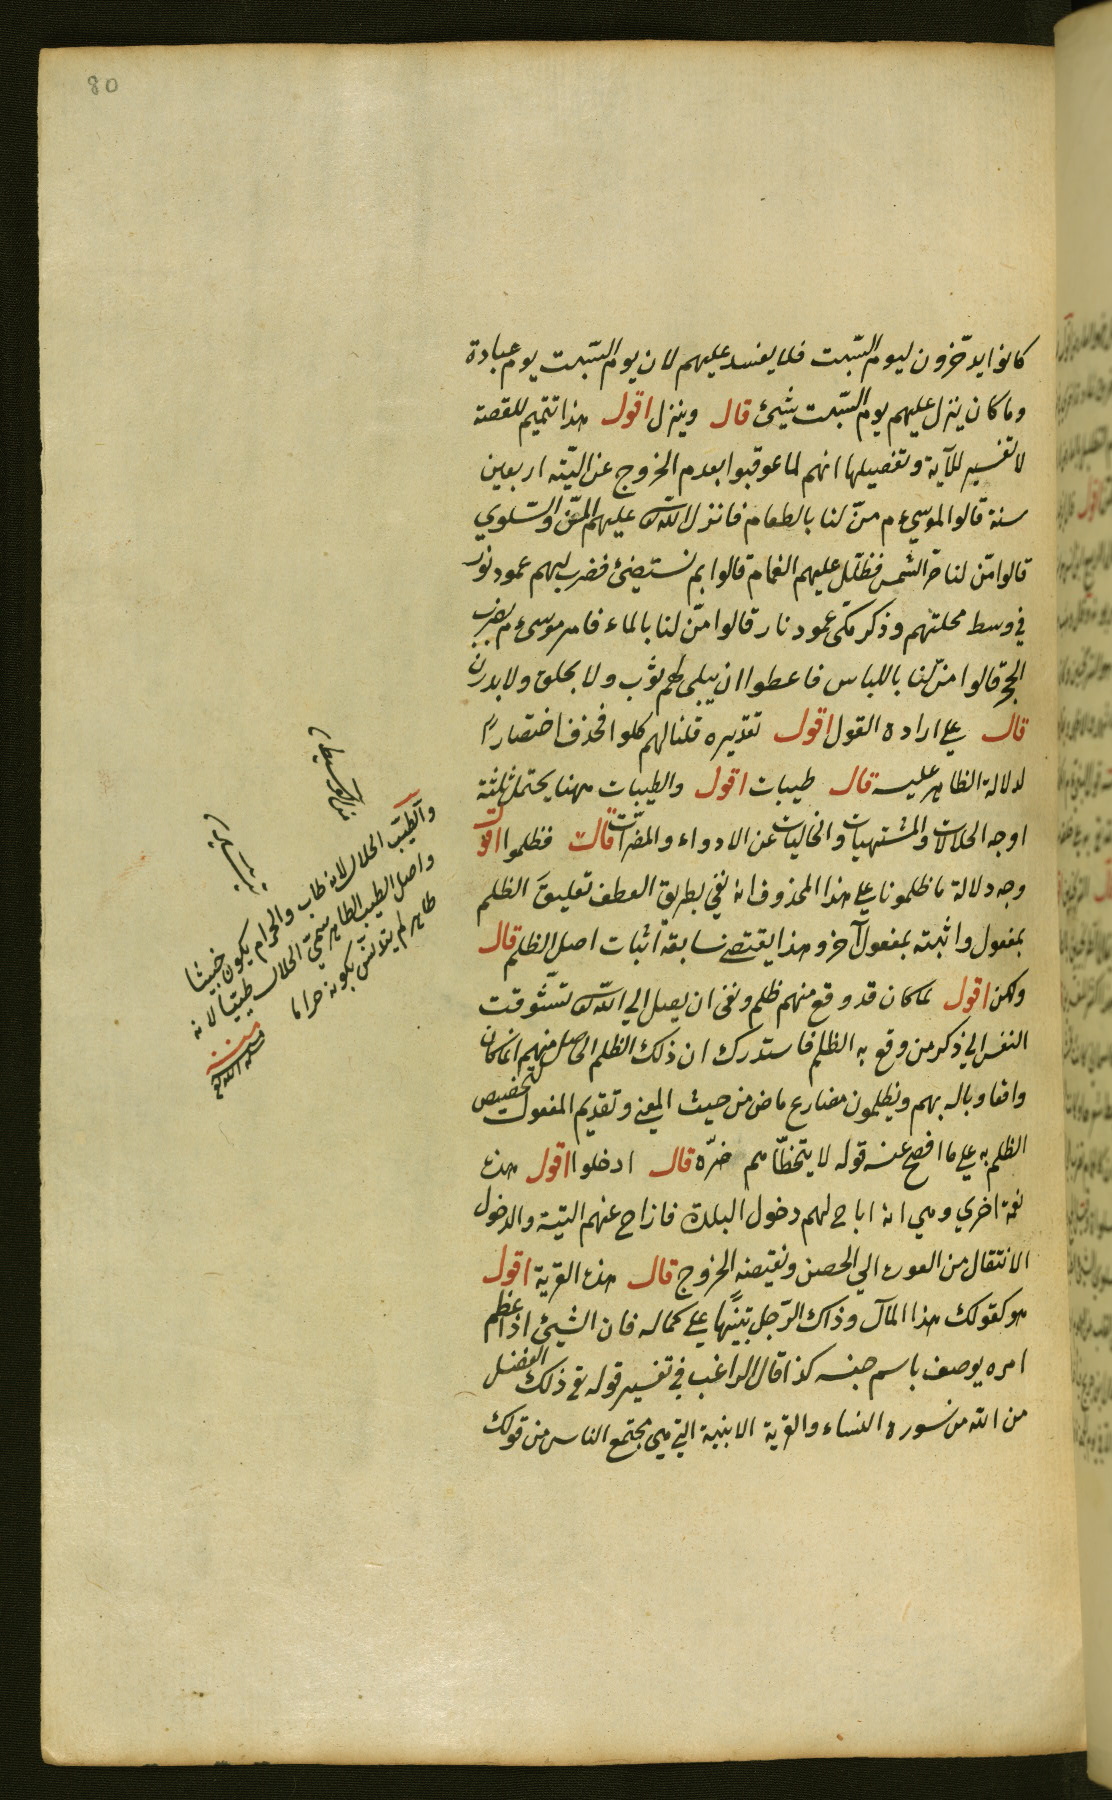 80
كانوا يدّخرون ليوم السّبت فلا يفسد عليهم لان يوم السّبت يوم عبادة
وما كان ينزل عليهم يوم السّبت شيئ قال وينزل اقول هذا تتميم للقصة
لا تفسير للآية وتفصيلها انهم لما عوقبوا بعدم الخروج عن التّيه اربعين
سنة قالوا لموسى ءم منّ لنا بالطعام فانزل اللّه عليهم المنّ والسّلوي
قالوا من لنا حرّ الشمس فظلّل عليهم الغمام قالوا بم نستضئ فضرب لهم عمود نور
في وسط محلتهم وذكر مكى عمود نار قالوا منّ لنا بالماء فامر موسى ءم بضرب
الحجر قالوا منّ لنا باللباس فاعطوا ان يبلى لهم ثوب ولا يخلق ولا يدرن
قال على اراده القول اقول تقديره قلنا لهم كلوا فحذف اختصارًا
لدلالة الظاهر عليه قال طيبات اقول والطيبات ههنا يحتمل ثلثة
اوجه الحلالات والمشتهيات والخاليات عن الادواء والمضرّات قال فظلموا اقول
وجه دلالة ما ظلمونا على هذا المحذوف انه نفي بطريق العطف تعليقَ الظلم
بمفعول واثبته بمفعول آخر وهذا يقتضى سابقة اثبات اصل الظلم قال
ولكن اقول لما كان قد وقع منهم ظلم ونفى ان يصل الي اللّه تشّوقت
النفس الي ذكر من وقع به الظلم فاستدرك ان ذلك الظلم الحاصل منهم انما كان
واقعا وباله بهم ويظلمون مضارع ماض من حيث المعنى وتقديم المفعول لتخصيص
الظلم به على ما افصح عنه قوله لا يتخطّاهم ضرّه قال ادخلوا اقول هذه
نعمة اخري وهي انه اباح لهم دخول البلدة فازاح عنهم التيه والدخول
الانتقال من العورة الي الحصن ونقيضه الخروج قال هذه القرية اقول
هو كقولك هذا المآل وذاك الرّجل تنبّيها على كماله فان الشيئ اذا عظم
امره يوصف باسم جنسه كذا قال الراغب في تفسير قوله تع ذلك الفضل
من اللّه من سورة النساء والقرية الابنية التي هي مجتمع الناس من قولك
والطيّب الحلال لانه طاب والحرام يكون خبيثا
واصل الطيب الطاهر سمّى الحلال طيّبا لانه
طاهر لم يتدنّس بكونه حراما
منه
سلمه الله تع